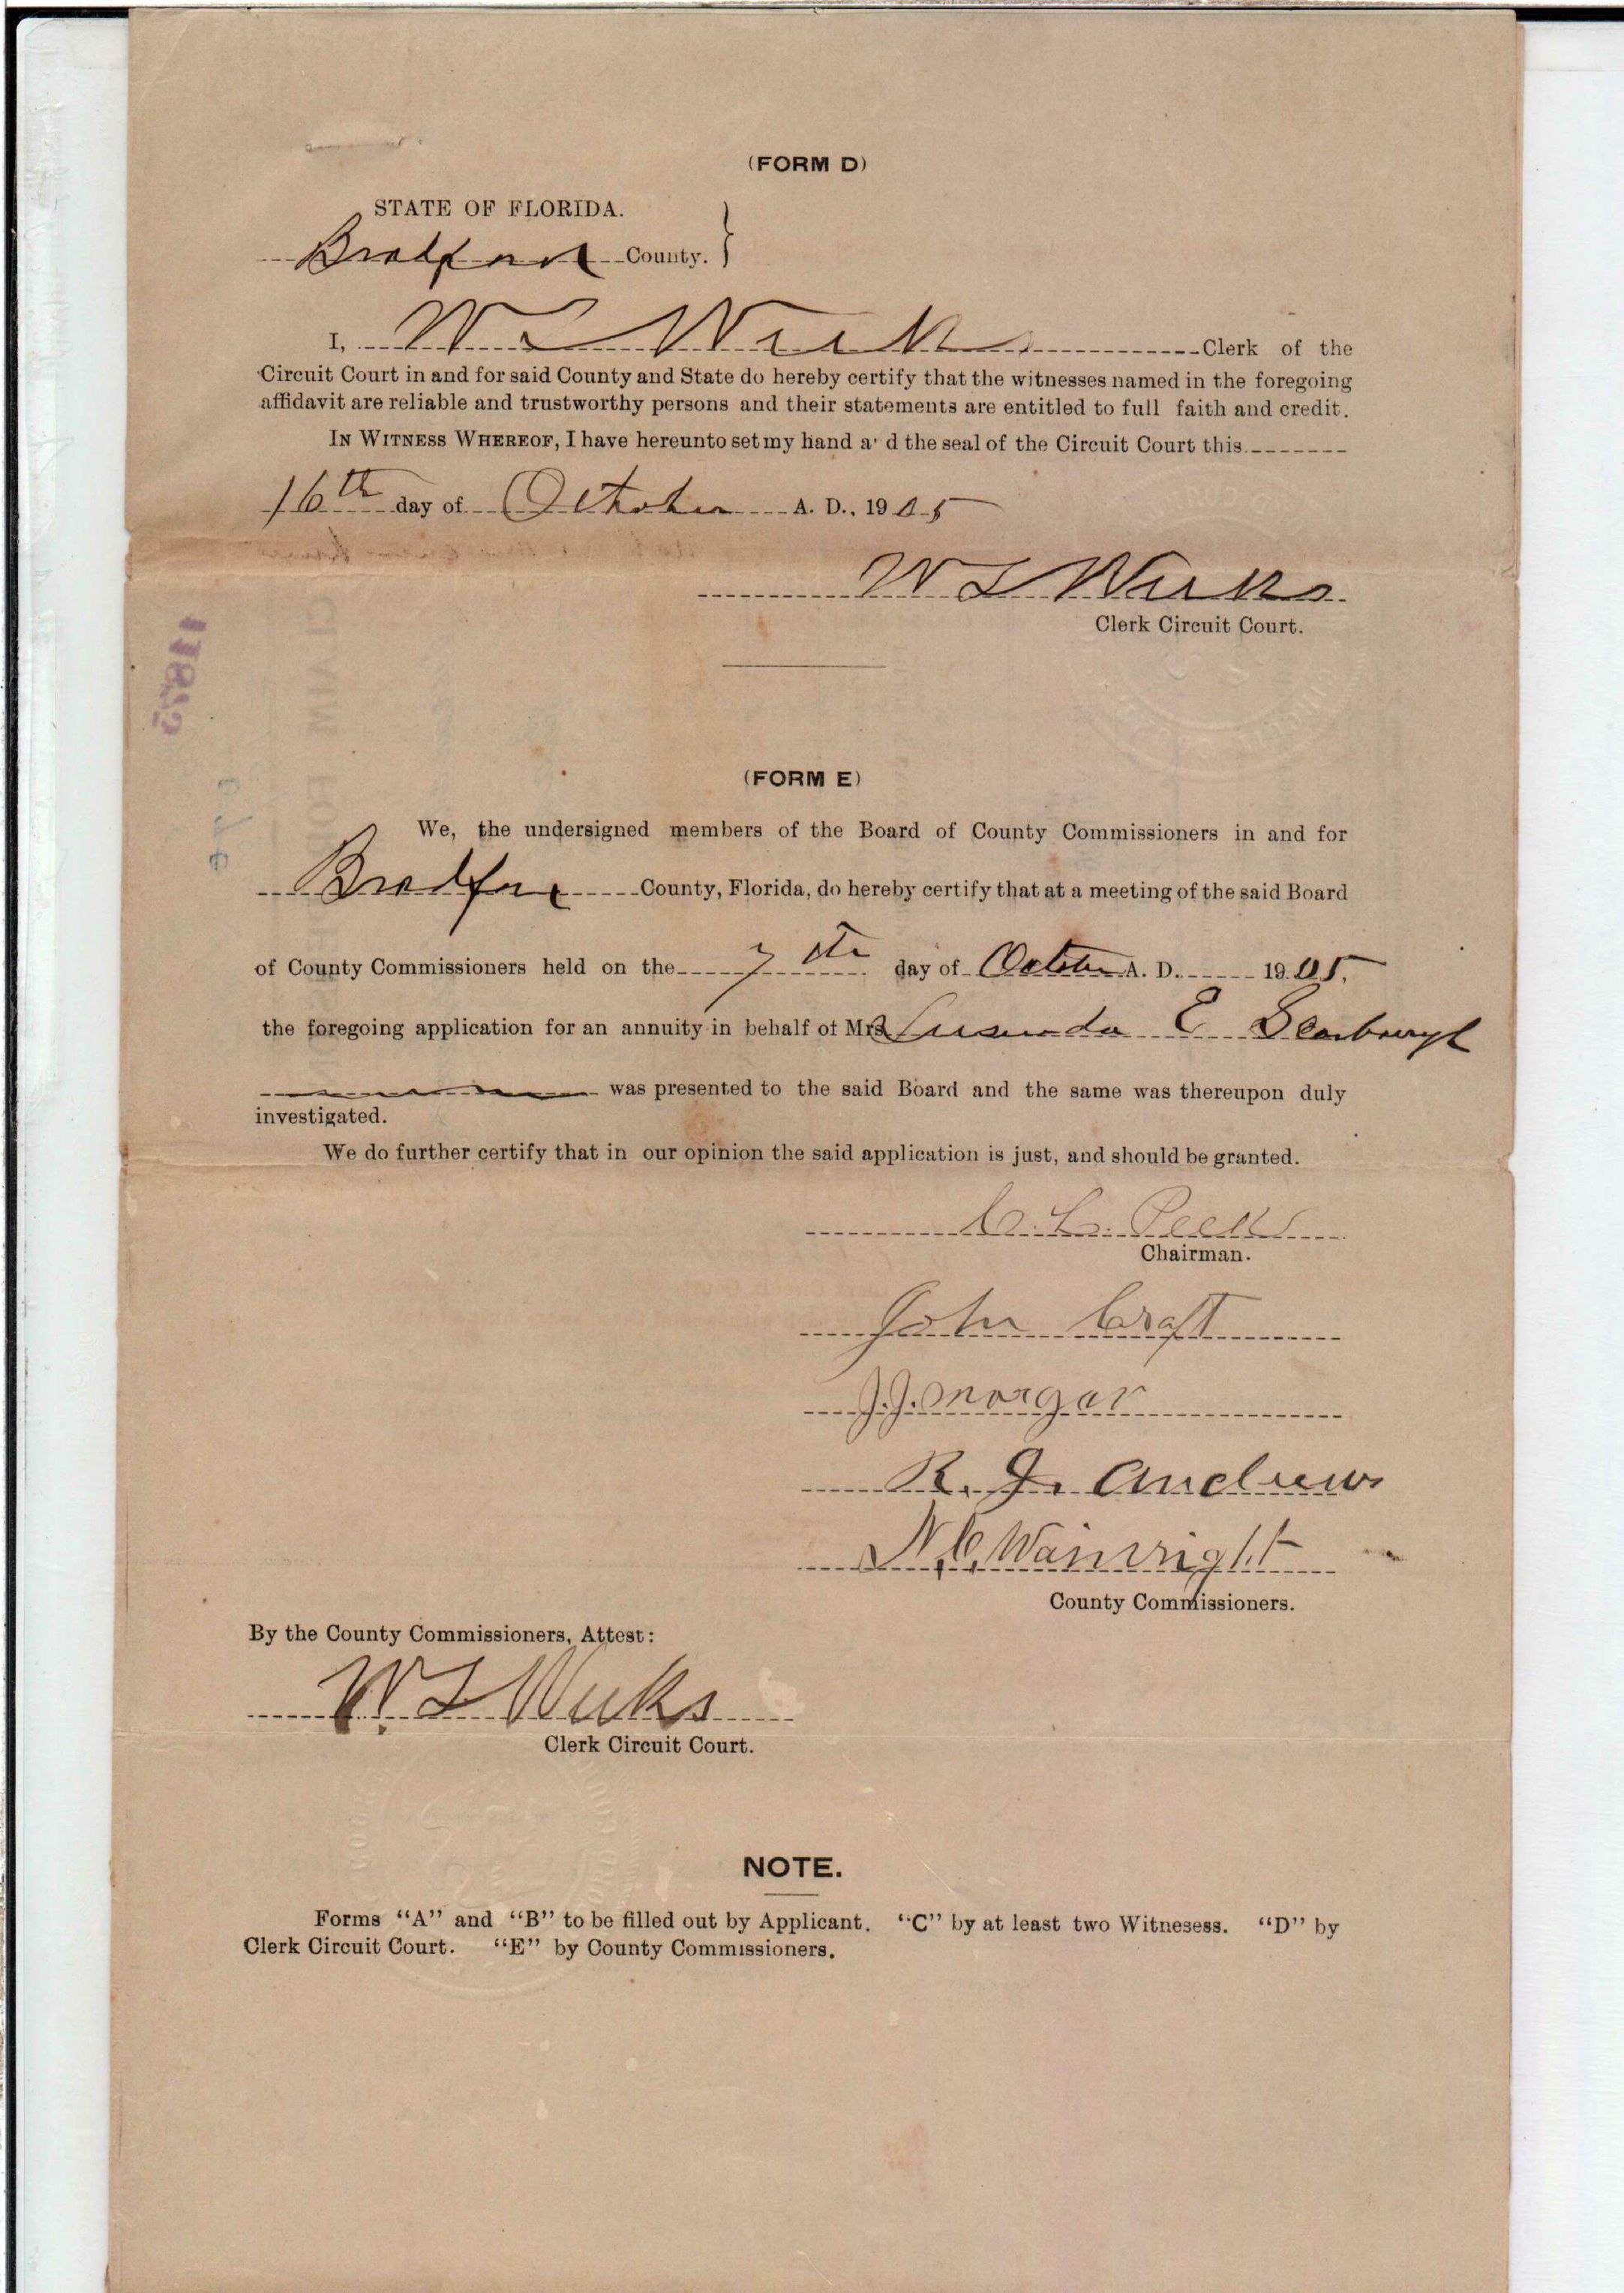 (FORM D)
STATE OF FLORIDA.
Bradford County.
I, W L Weeks Clerk of the
Circuit Court in and for said County and State do hereby certify that the witnesses named in the foregoing
affidavit are reliable and trustworthy persons and their statements are entitled to full faith and credit.
IN WITNESS WHEREOF, I have hereunto set my hand a d the seal of the Circuit Court this
16th day of October A. D., 1905
W L Weeks
Clerk Circuit Court.
(FORM E)
We, the undersigned members of the Board of County Commissioners in and for
Bradford County, Florida, do hereby certify that at a meeting of the said Board
of County Commissioners held on the 7th day of October A. D. 1905,
the foregoing application for an annuity in behalf of Mrs E Scarbourgh
was presented to the said Board and the same was thereupon duly
investigated.
We do further certify that in our opinion the said application is just, and should be granted.
C. L. Peek
Chairman.
John Craft
J.J. Morgan
R. J. Andrews
N. C. Wainright
County Commissioners.
By the County Commissioners, Attest:
W L Weeks
Clerk Circuit Court.
NOTE.
Forms "A" and "B" to be filled out by Applicant. "C" by at least two Witnesess. "D" by
Clerk Circuit Court. "E" by County Commissioners.